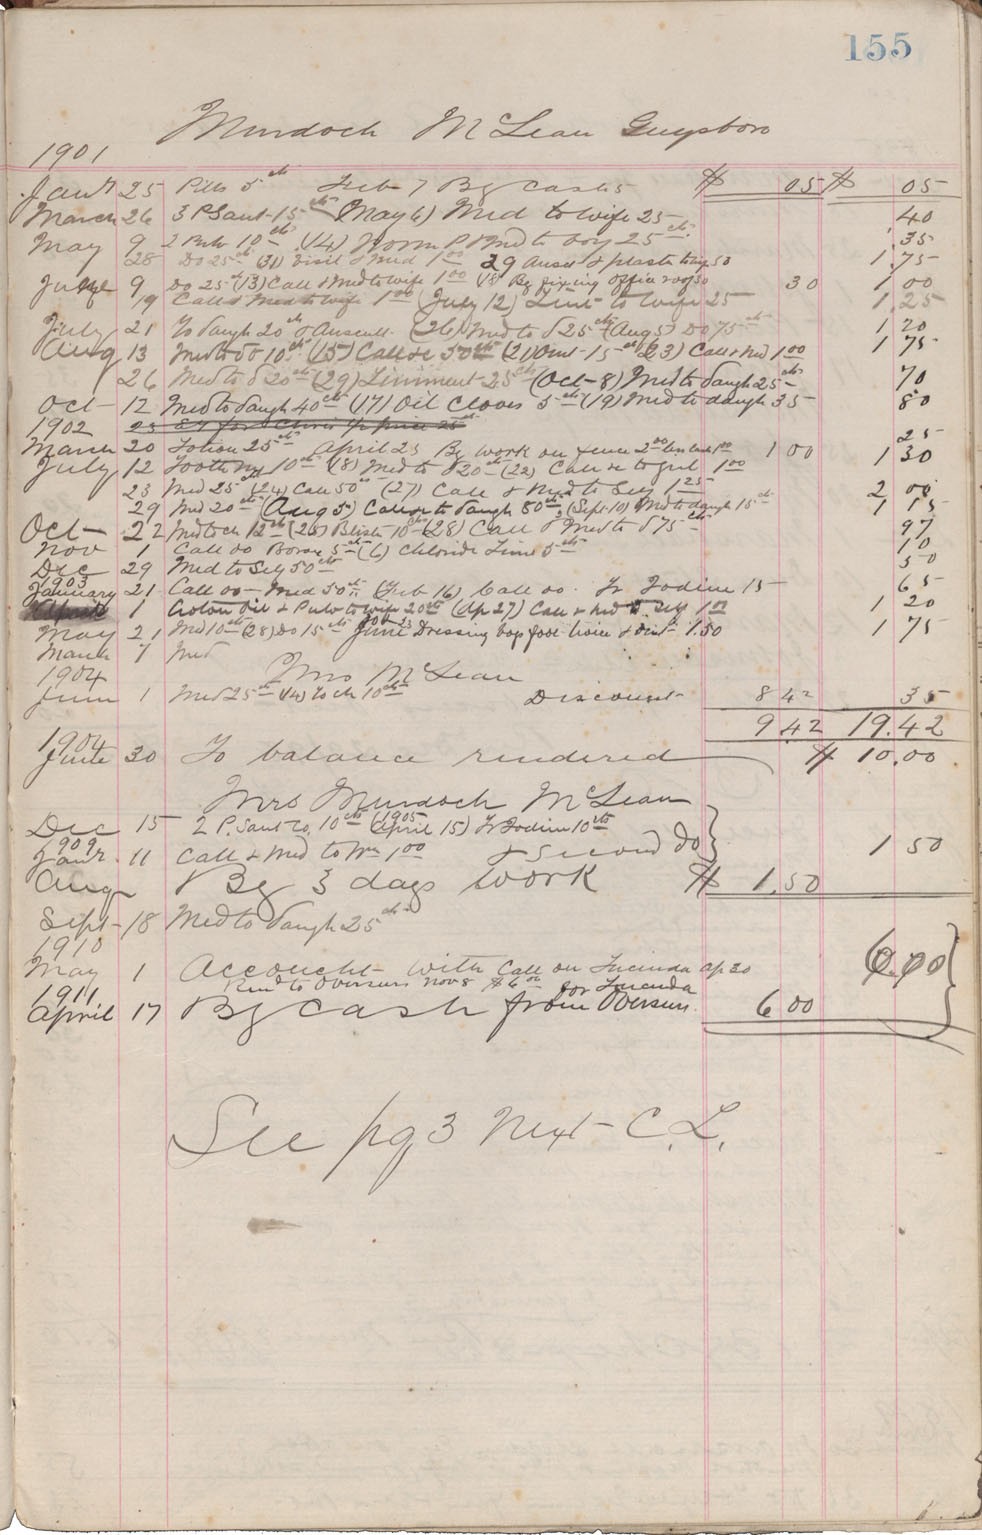 155
Murdoch McLean Guysboro
1901
Jany 25 Pills 5cts Feb 7 By Cash 5 $ 05 $ 05
March 26 3 P Sant 15cts (May 6) Med to wife 25 40
May 9 2 Pulv 10cts (14) Worm P & Med to boy 25cts 35
28 Do 25cts (31) Visit & Med 1.00 29 & plaster 50 1 75
June 9 Do 25cts (13) Call & Med to wife 1.00 (18 By fixing office roof 30 30 1 00
19 Call & Med to wife 1.00 (July 12) Lint to wife 25 1 25
July 21 To daugh 20cts (26) Med to d 25cts (Aug 5) Do 75cts 1 20
Aug 13 Med to do 10cts (15) Call &c 50cts (21) Oint 15cts (23) Call & Med 1.00 1 75
26 Med to d 20cts (29) Liniment 25cts (Oct 8) Med to daugh 25cts 70
Oct 12 Med to daugh 40cts (17) Oil Cloves 5cts (19) Med to daugh 35 80
1902
March 20 Lotion 25cts April 25 By work on fence 2.00 1 00 25
July 12 10cts (18) Med to d 20cts (22) Call &c to girl 1.00 1 30
23 Med 25cts (24) Call 50cts (27) Call & Med to Self 1.25 2 00
29 Med 20cts (Aug 5) Call &c to daugh 80cts (Sept 10) Med to daugh 15cts 1 15
Oct 22 Med to ch 12cts (25) Blister 10cts (28) Call & Med to d 75cts 97
Nov 1 Call 00 Borax 5cts (6) Chloride Lime 5cts 10
Dec 29 Med to Self 50cts 50
1903
January 21 Call 00 Med 50cts (Feb 16) Call 00. Tr Iodine 15 65
1 Croton Oil & Pulv to wife 20cts (Ap 27) Call & Med to Self 1.00 1 20
May 21 Med 10cts (28) Do 15cts June Dressing boys foot twice & Oint 1.50 1 75
March 7 Med
1904 Mrs McLean
June 1 Med 25cts (14) to ch 10cts Discount 8 42 35
9.42 19.42
1904
June 30 To balance rendered $ 10.00
Mrs Murdoch McLean
Dec 15 2 P. Sant Co. 10cts (1905 April 15) Tr Iodine 10cts
1909
Janr 11 Call & Med to Wm 1.00 & Second Do 1 50
Aug By 3 days work $ 1.50
Sept 18 Med to daugh 25cts
1910
May 1 Account with Call on Lucinda Ap 30 6.00
Rend to Overseers Nov 8 $6.00 for Lucinda
1911
April 17 By Cash from Overseers 6 00
See pg 3 Next C. L.